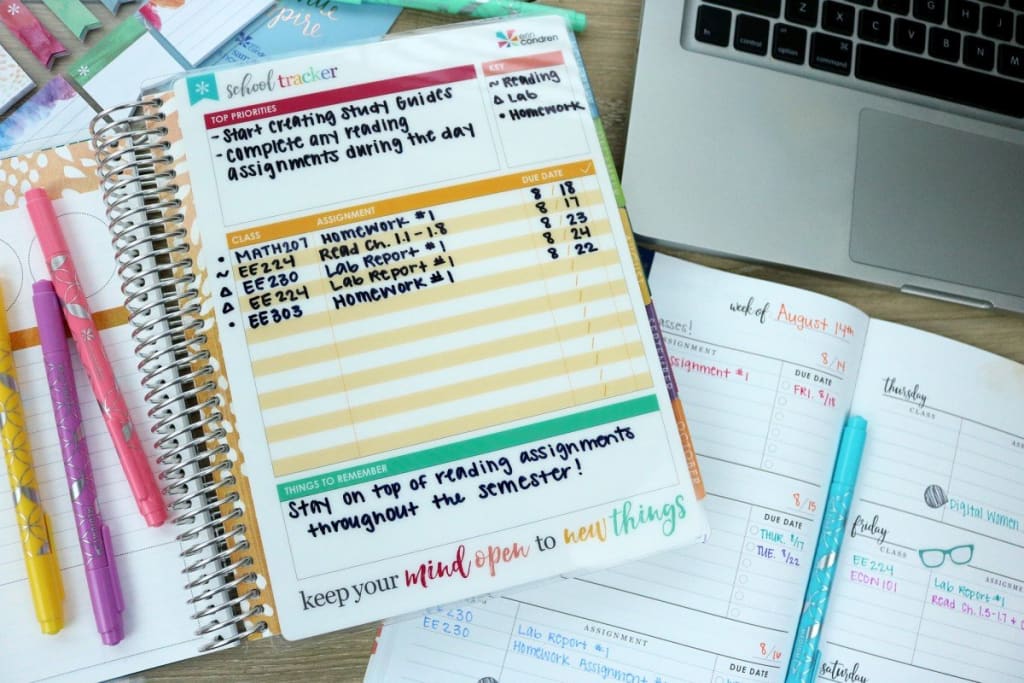 fn
control
option
command
Z
X
C
V
B
N
M
G
H
J
K
pire
erin condren
school tracker
TOP PRIORITIES
- Start creating Study Guides
- Complete any reading
assignments during the day
KEY
~ Reading
Δ Lab
• Homework
CLASS ASSIGNMENT DUE DATE ✓
• MATH207 Homework #1 8 / 18
~ EE224 Read Ch. 1.1 - 1.8 8 / 17
Δ EE230 Lab Report #1 8 / 23
Δ EE224 Lab Report #1 8 / 24
• EE303 Homework #1 8 / 22
THINGS TO REMEMBER
Stay on top of reading assignments
throughout the semester!
keep your mind open to new things
OCTOBER
week of August 14th
asses!
8/14
SSIGNMENT DUE DATE
ssignment #1 FRI. 8/18
8/15
DUE DATE
THUR. 8/17
TUE. 8/22
8/16
ASSIGNMENT DUE DATE
EE230 Lab Report #1
EE230 Homework Assignment
thursday
CLASS ASSIGNM
Digital Women
friday
CLASS ASSIGNM
EE224 Lab Report #1
ECON101 Read Ch. 1.5-1.7 +
saturday